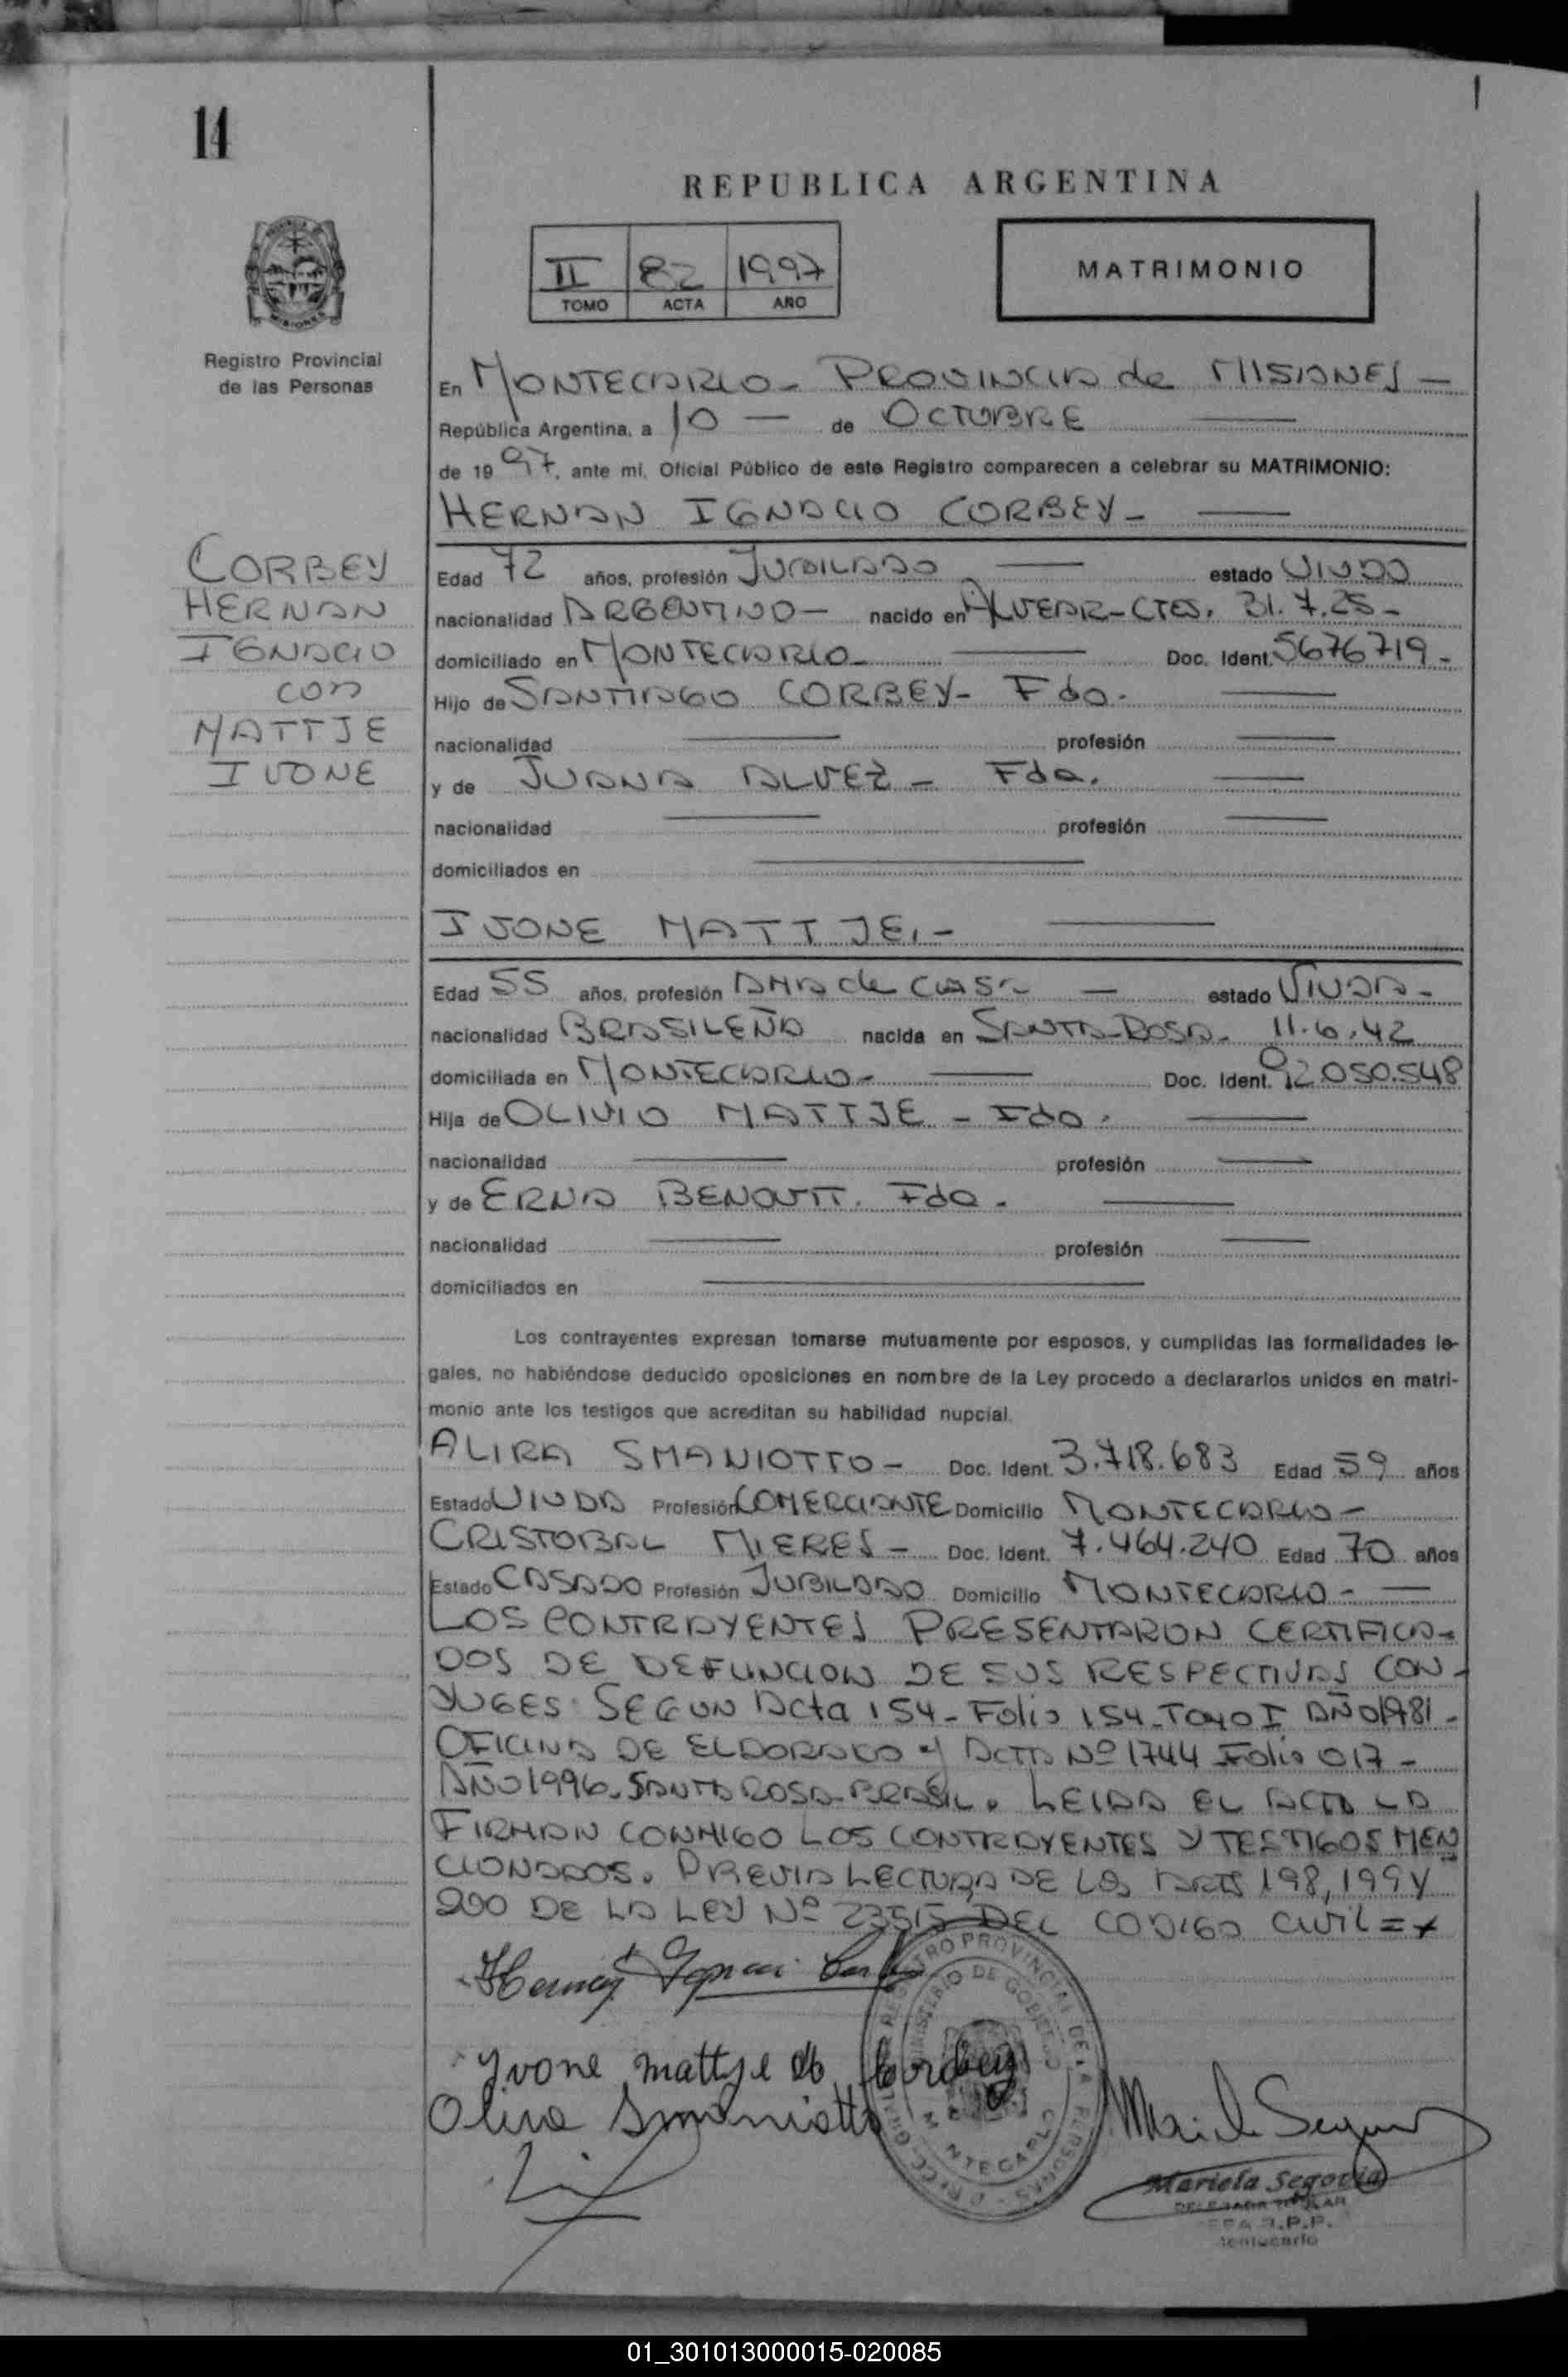 14
REPUBLICA ARGENTINA
II 82 1997
TOMO ACTA AÑO
MATRIMONIO
MISIONES
Registro Provincial
de las Personas
En MONTECARLO - PROVINCIA de MISIONES -
República Argentina, a 10 — de OCTUBRE
de 1997, ante mi, Oficial Público de este Registro comparecen a celebrar su MATRIMONIO:
HERNAN IGNACIO CORBEY -
CORBEY
HERNAN
IGNACIO
con
MATTJE
IVONE
Edad 72 años, profesión JUBILADO estado VIUDO
nacionalidad ARGENTINO - nacido en ALVEAR - CTES. 31.7.25 -
domiciliado en MONTECARLO - Doc. Ident. 5676719 -
Hijo de SANTIAGO CORBEY - Fdo.
nacionalidad profesión
y de JUANA ALVEZ - Fda.
nacionalidad profesión
domiciliados en
IVONE MATTJE. -
Edad 55 años, profesión AMA de CASA estado VIUDA -
nacionalidad BRASILEÑA nacida en SANTA ROSA - 11.6.42
domiciliada en MONTECARLO - Doc. Ident. 92.050.548
Hija de OLIVIO MATTJE - Fdo.
nacionalidad profesión
y de ERNA Fda.
nacionalidad profesión
domiciliados en
Los contrayentes expresan tomarse mutuamente por esposos, y cumplidas las formalidades le-
gales, no habiéndose deducido oposiciones en nombre de la Ley procedo a declararlos unidos en matri-
monio ante los testigos que acreditan su habilidad nupcial.
ALIRA SMANIOTTO - Doc. Ident. 3.718.683 Edad 59 años
Estado VIUDA Profesión COMERCIANTE Domicilio MONTECARLO -
CRISTOBAL MIERES - Doc. Ident. 7.464.240 Edad 70 años
Estado CASADO Profesión JUBILADO Domicilio MONTECARLO -
LOS CONTRAYENTES PRESENTARON CERTIFICA-
DOS DE DEFUNCION DE SUS RESPECTIVAS CON-
YUGES: SEGUN Acta 154 - Folio 154 - TOMO I AÑO 1981 -
OFICINA DE ELDORADO y ACTA Nº 1744 Folio 017 -
AÑO 1996 - SANTA ROSA - BRASIL. LEIDA EL ACTA LA
FIRMAN CONMIGO LOS CONTRAYENTES Y TESTIGOS MEN
CIONADOS. PREVIA LECTURA DE LOS ARTS 198, 199 Y
200 DE LA LEY Nº 23515 DEL CODIGO CIVIL =
Yvone mattje de Corbey
Mariela Segovia
DELEGADA TITULAR
R.P.P.
Montecarlo
REGISTRO PROVINCIAL DE LAS PERSONAS
MINISTERIO DE GOBIERNO
MONTECARLO
01_301013000015-020085